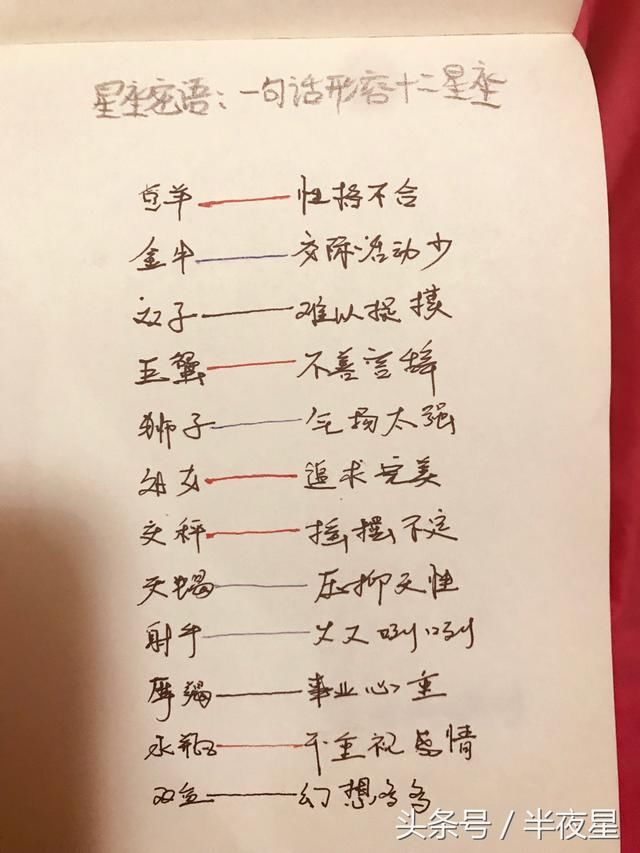 星座密语：一句话形容十二星座
白羊 性格不合
金牛 交际活动少
双子 难以捉摸
巨蟹 不善言辞
狮子 气场太强
处女 追求完美
天秤 摇摆不定
天蝎 压抑天性
射手 大大咧咧
摩羯 事业心重
水瓶 不重视感情
双鱼 幻想多多
头条号 / 半夜星